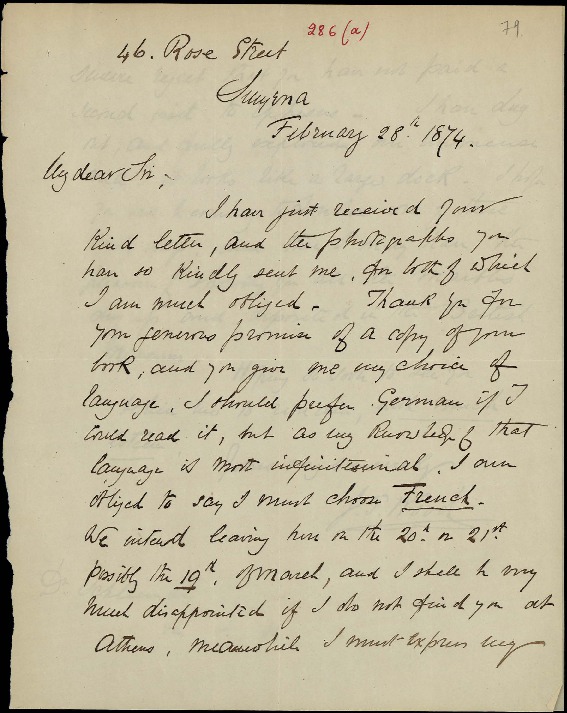 286 (a)
79.
46. Rose Street
Smyrna
February 28th 1874.
My dear Sir;
I have just received your
kind letter, and the photographs you
have so kindly sent me, for both of which
I am much obliged. Thank you for
your generous promise of a copy of your
book, and you give me my choice of
language. I should prefer German if I
could read it, but as my knowledge of that
language is most infinitesimal, I am
obliged to say I must choose French.
We intend leaving here on the 20th or 21st
possibly the 19th, of March, and I shall be very
much disappointed if I do not find you at
Athens, meanwhile I must express my